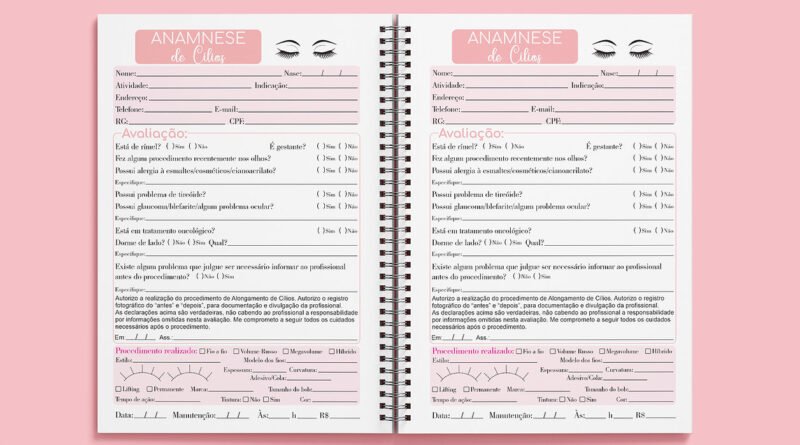 ANAMNESE
de Cílios
Nome: Nasc: / /
Atividade: Indicação:
Endereço:
Telefone: E-mail:
RG: CPF:
Avaliação:
Está de rímel? ( )Sim ( )Não É gestante? ( )Sim ( )Não
Fez algum procedimento recentemente nos olhos? ( )Sim ( )Não
Possui alergia à esmaltes/cosméticos/cianoacrilato? ( )Sim ( )Não
Especifique:
Possui problema de tireóide? ( )Sim ( )Não
Possui glaucoma/blefarite/algum problema ocular? ( )Sim ( )Não
Especifique:
Está em tratamento oncológico? ( )Sim ( )Não
Dorme de lado? ( )Não ( )Sim Qual?
Existe algum problema que julgue ser necessário informar ao profissional
antes do procedimento? ( )Não ( )Sim
Especifique:
Autorizo a realização do procedimento de Alongamento de Cílios. Autorizo o registro
fotográfico do "antes" e "depois", para documentação e divulgação da profissional.
As declarações acima são verdadeiras, não cabendo ao profissional a responsabilidade
por informações omitidas nesta avaliação. Me comprometo a seguir todos os cuidados
necessários após o procedimento.
Em: / / Ass.:
Procedimento realizado: Fio a fio Volume Russo Megavolume Híbrido
Estilo: Modelo dos fios:
Espessura: Curvatura:
Adesivo/Cola:
Lifting Permanente Marca: Tamanho do bole:
Tempo de ação: Tintura: Não Sim Cor:
Data: / / Manutenção: / / Às: h R$
ANAMNESE
de Cílios
Nome: Nasc: / /
Atividade: Indicação:
Endereço:
Telefone: E-mail:
RG: CPF:
Avaliação:
Está de rímel? ( )Sim ( )Não É gestante? ( )Sim ( )Não
Fez algum procedimento recentemente nos olhos? ( )Sim ( )Não
Possui alergia à esmaltes/cosméticos/cianoacrilato? ( )Sim ( )Não
Especifique:
Possui problema de tireóide? ( )Sim ( )Não
Possui glaucoma/blefarite/algum problema ocular? ( )Sim ( )Não
Especifique:
Está em tratamento oncológico? ( )Sim ( )Não
Dorme de lado? ( )Não ( )Sim Qual?
Existe algum problema que julgue ser necessário informar ao profissional
antes do procedimento? ( )Não ( )Sim
Especifique:
Autorizo a realização do procedimento de Alongamento de Cílios. Autorizo o registro
fotográfico do "antes" e "depois", para documentação e divulgação da profissional.
As declarações acima são verdadeiras, não cabendo ao profissional a responsabilidade
por informações omitidas nesta avaliação. Me comprometo a seguir todos os cuidados
necessários após o procedimento.
Em: / / Ass.:
Procedimento realizado: Fio a fio Volume Russo Megavolume Híbrido
Estilo: Modelo dos fios:
Espessura: Curvatura:
Adesivo/Cola:
Lifting Permanente Marca: Tamanho do bole:
Tempo de ação: Tintura: Não Sim Cor:
Data: / / Manutenção: / / Às: h R$